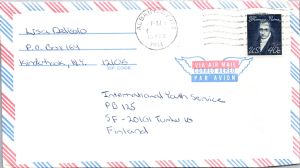 Lisa DeRosio
P.O. Box 164
Kinderhook, N.Y. 12106
ZIP CODE
ALBANY
PM
1984
Thomas Paine
US 40c
VIA AIR MAIL
CORREO AEREO
PAR AVION
International Youth Service
PB 125
SF-20101 Turku 10
Finland